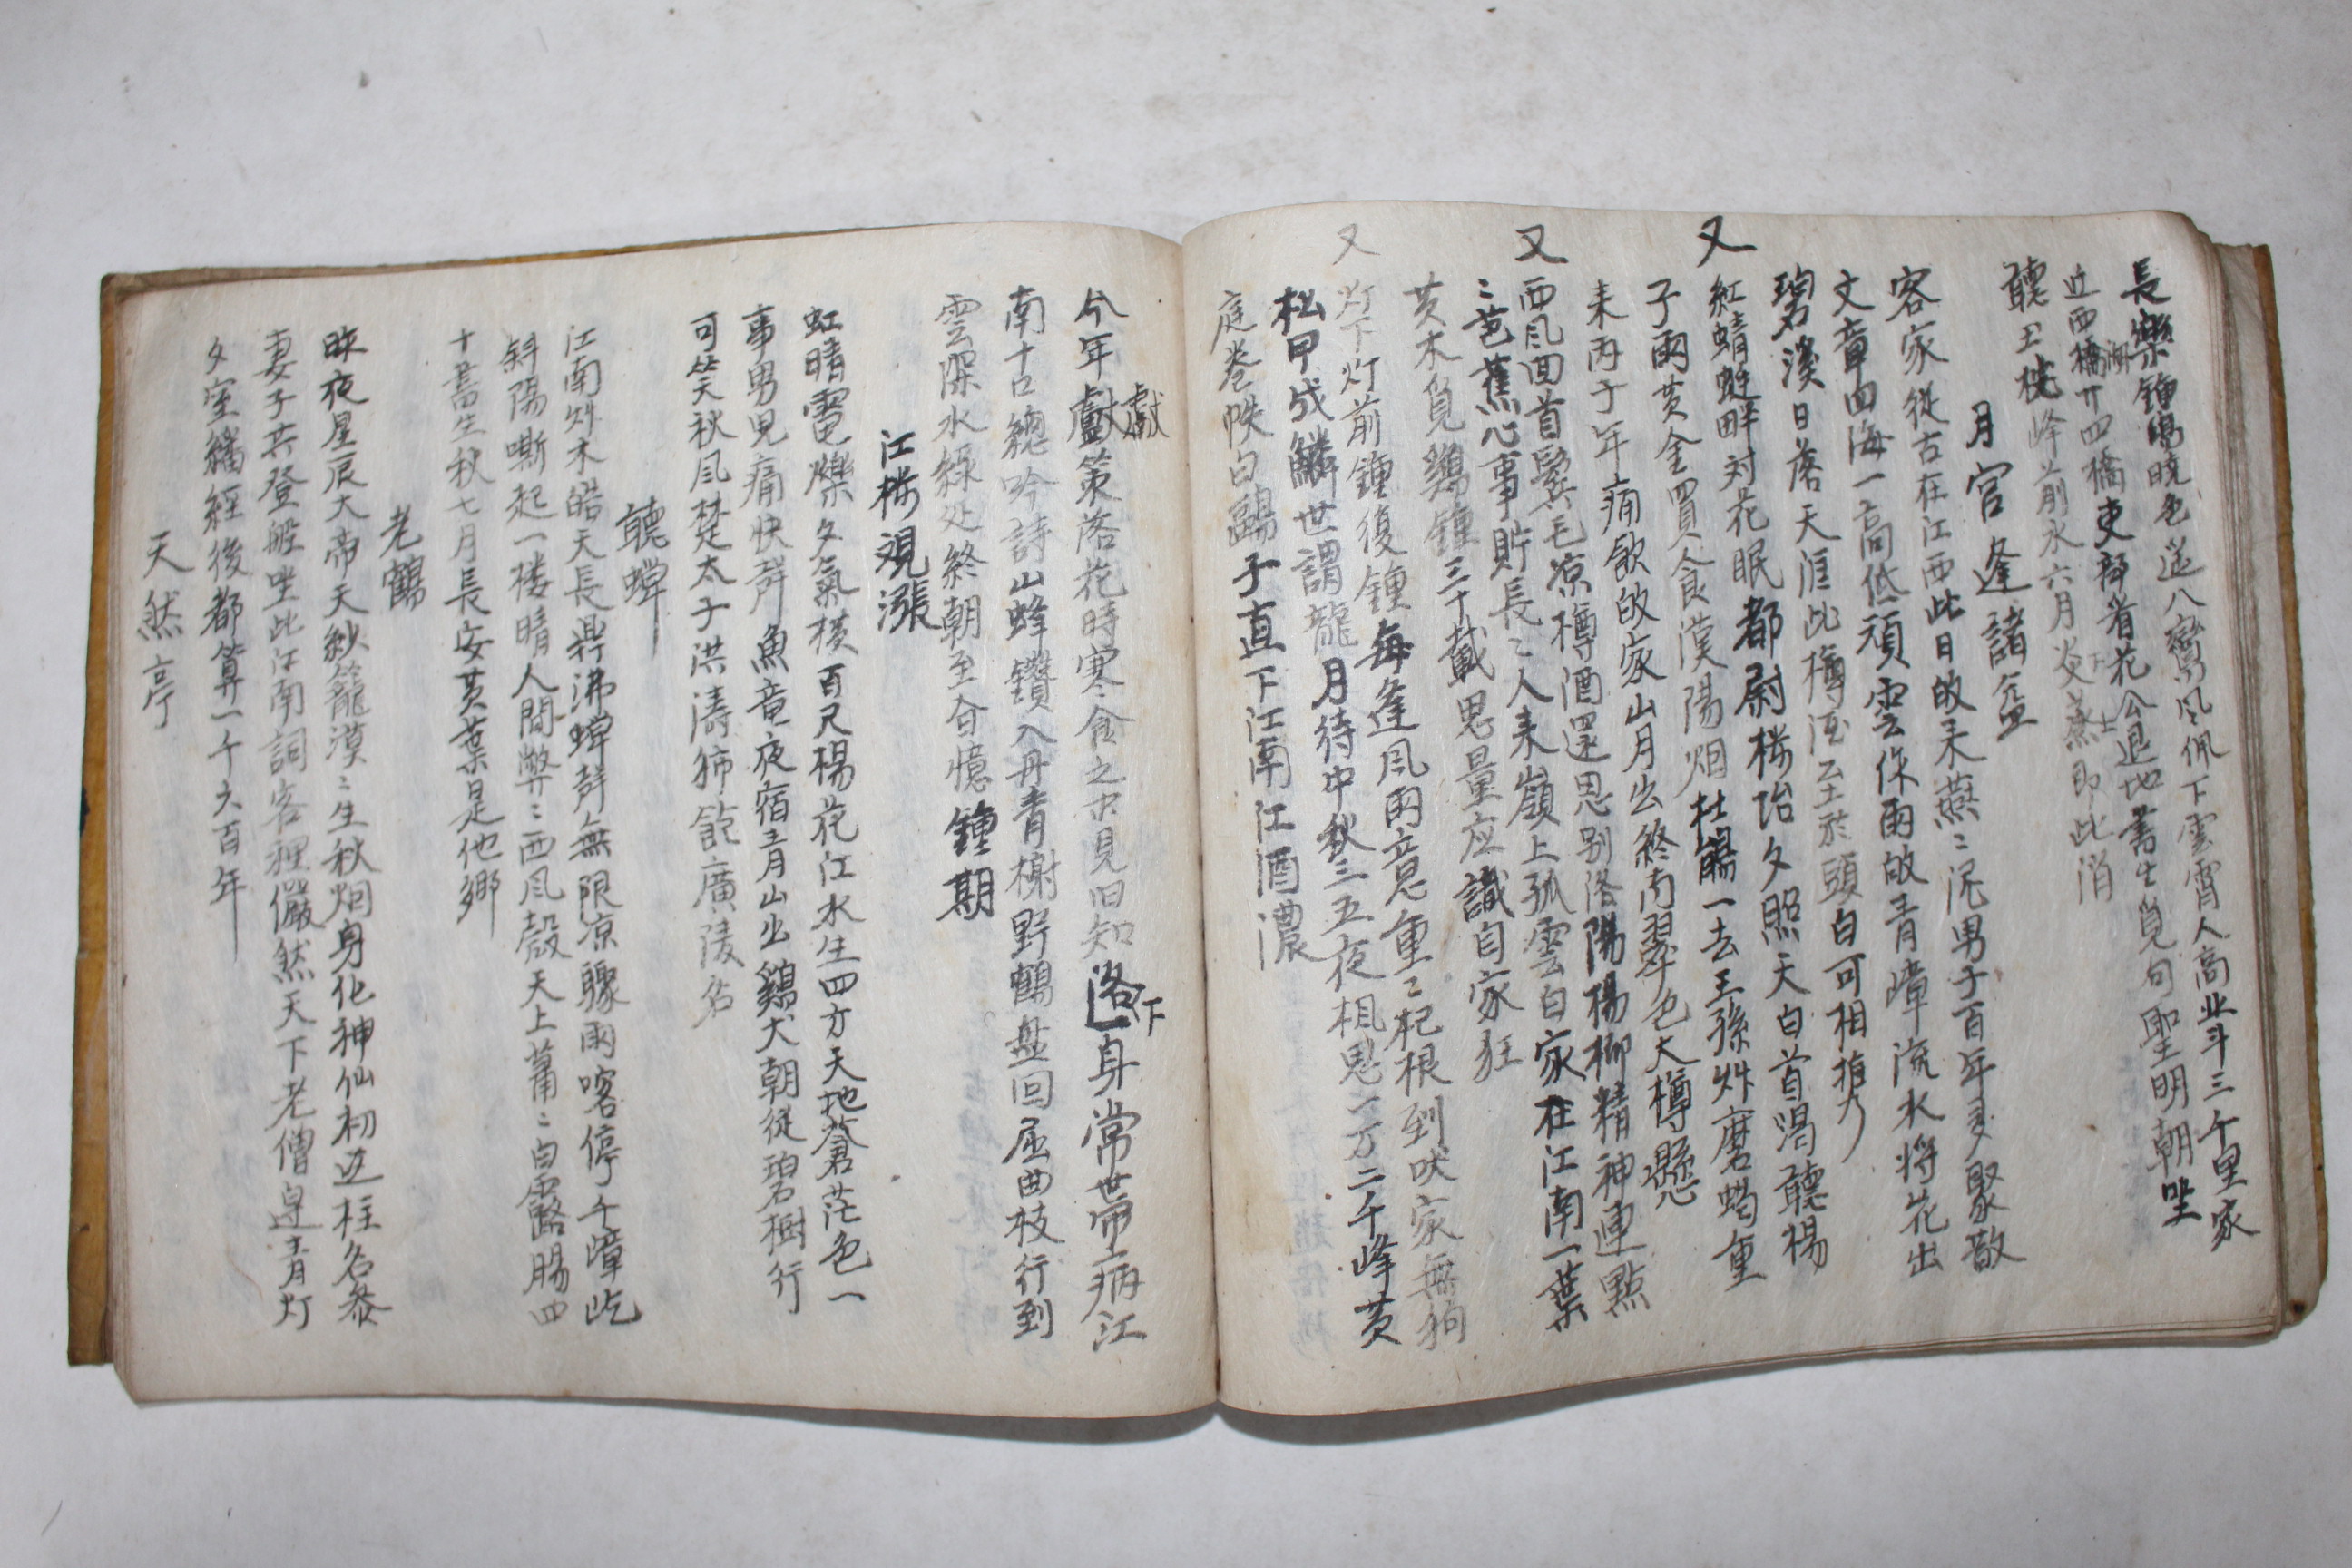 長樂鍾鳴曉色遥八鸞風佩下雲霄人高北斗三千里家
近西湖橋廿四橋吏部看花公退地書生覓句聖明朝坐
聽玉 峰前水六月炎蒸即此消
月宮逢諸益
客家從古在江西此日故來燕〻泥男子百年多聚散
文章四海一高低頑雲作雨故青嶂流水將花出
碧溪日落天涯此樽酒至於頭白可相携
又
紅蜻蜓畔対花眠都尉樓 夕照天白首渴聽楊
子雨黄金買食漢陽烟杜鵑一去王孫艸磨蝎重
来丙子年痛飲故家山月出終南翠色大樽懸
又
西風回首鬂毛凉樽酒還思别洛陽楊柳精神連點
〻芭蕉心事貯長〻人来嶺上孤雲白家在江南一葉
黄木覓鷄鍾三十載思量应識自家狂
又
灯下灯前鍾復鍾每逢風雨意重〻杞根到吠家無狗
松甲成鱗世謂龍月待中秋三五夜相思一万二千峰黄
庭卷帙白鷗子直下江南江酒濃
獻
今年獻策落花時寒食之 見旧知洛下一身常帶病江
南十口總吟詩山蜂鑽入丹青榭野鶴盘回屈曲枝行到
雲深水緑处終朝至今憶鍾期
江樓覌漲
虹晴電爍夕氣横百尺楊花江水生四方天地蒼茫色一
事男児痛快聲魚竜夜宿青山出鷄犬朝從碧樹行
可笑秋風楚太子洪濤 飽廣陵名
聽蟬
江南艸木皓天長鼎沸蟬聲無限凉驟雨喀停千嶂屹
斜陽嘶起一楼晴人間弊〻西風殼天上蕭〻白露腸四
十書生秋七月長安黄葉是他鄉
老鶴
昨夜星辰大帝天 籠漠〻生秋烟身化神仙初边柱名参
妻子共登船坐此江南詞客裡儼然天下老僧邊青灯
夕室繙經後都算一千六百年
天然亭